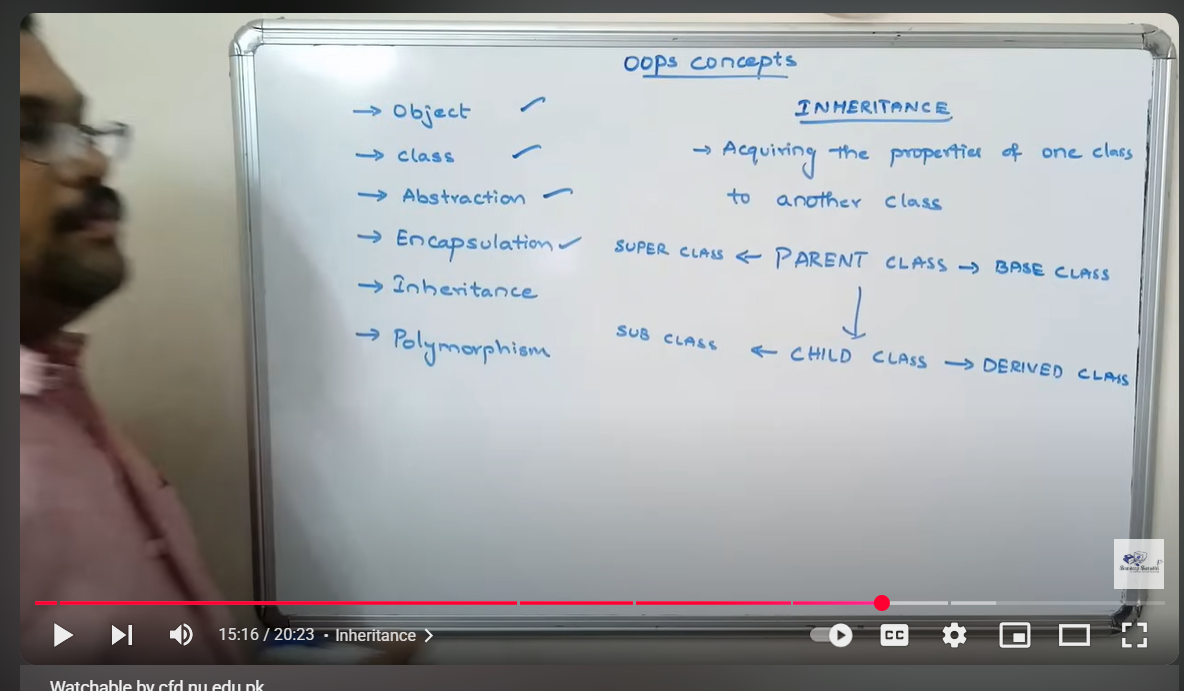 OOPS concepts
→ Object ✓
→ class ✓
→ Abstraction ✓
→ Encapsulation ✓
→ Inheritance
→ Polymorphism
INHERITANCE
→ Acquiring the properties of one class
to another class
SUPER CLASS ← PARENT CLASS → BASE CLASS
SUB CLASS ← CHILD CLASS → DERIVED CLASS
15:16 / 20:23 • Inheritance
CC
Watchable by cfd.nu.edu.pk